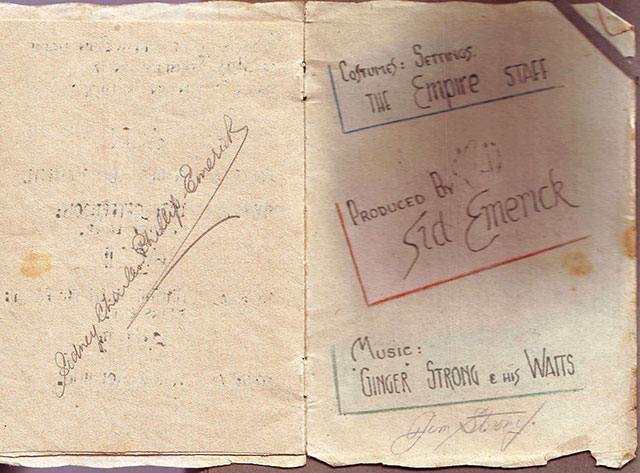 Sidney Charles Phillip Emerick
Costumes: Settings.
THE Empire STAFF
PRODUCED BY
Sid Emerick
MUSIC:
"GINGER" STRONG & HIS WATTS
Jim Strong.